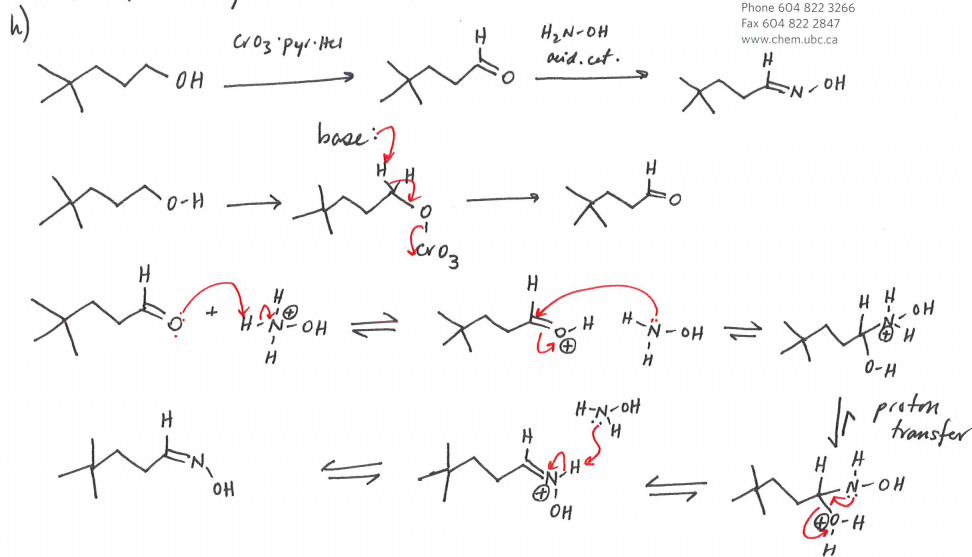 Phone 604 822 3266
Fax 604 822 2847
www.chem.ubc.ca
h)
CrO3·pyr·HCl
H2N-OH
acid. cat.
OH
H
O
H
N-OH
base:
O-H
H H
O
CrO3
H
O
H
O
+
H
H-N-OH
⊕
H
H
O-H
⊕
H-N-OH
H
H
N-OH
H
⊕
H
O-H
proton
transfer
H
N
OH
H-N-OH
H
H
N-H
⊕
OH
H
H
N-OH
⊕O-H
H